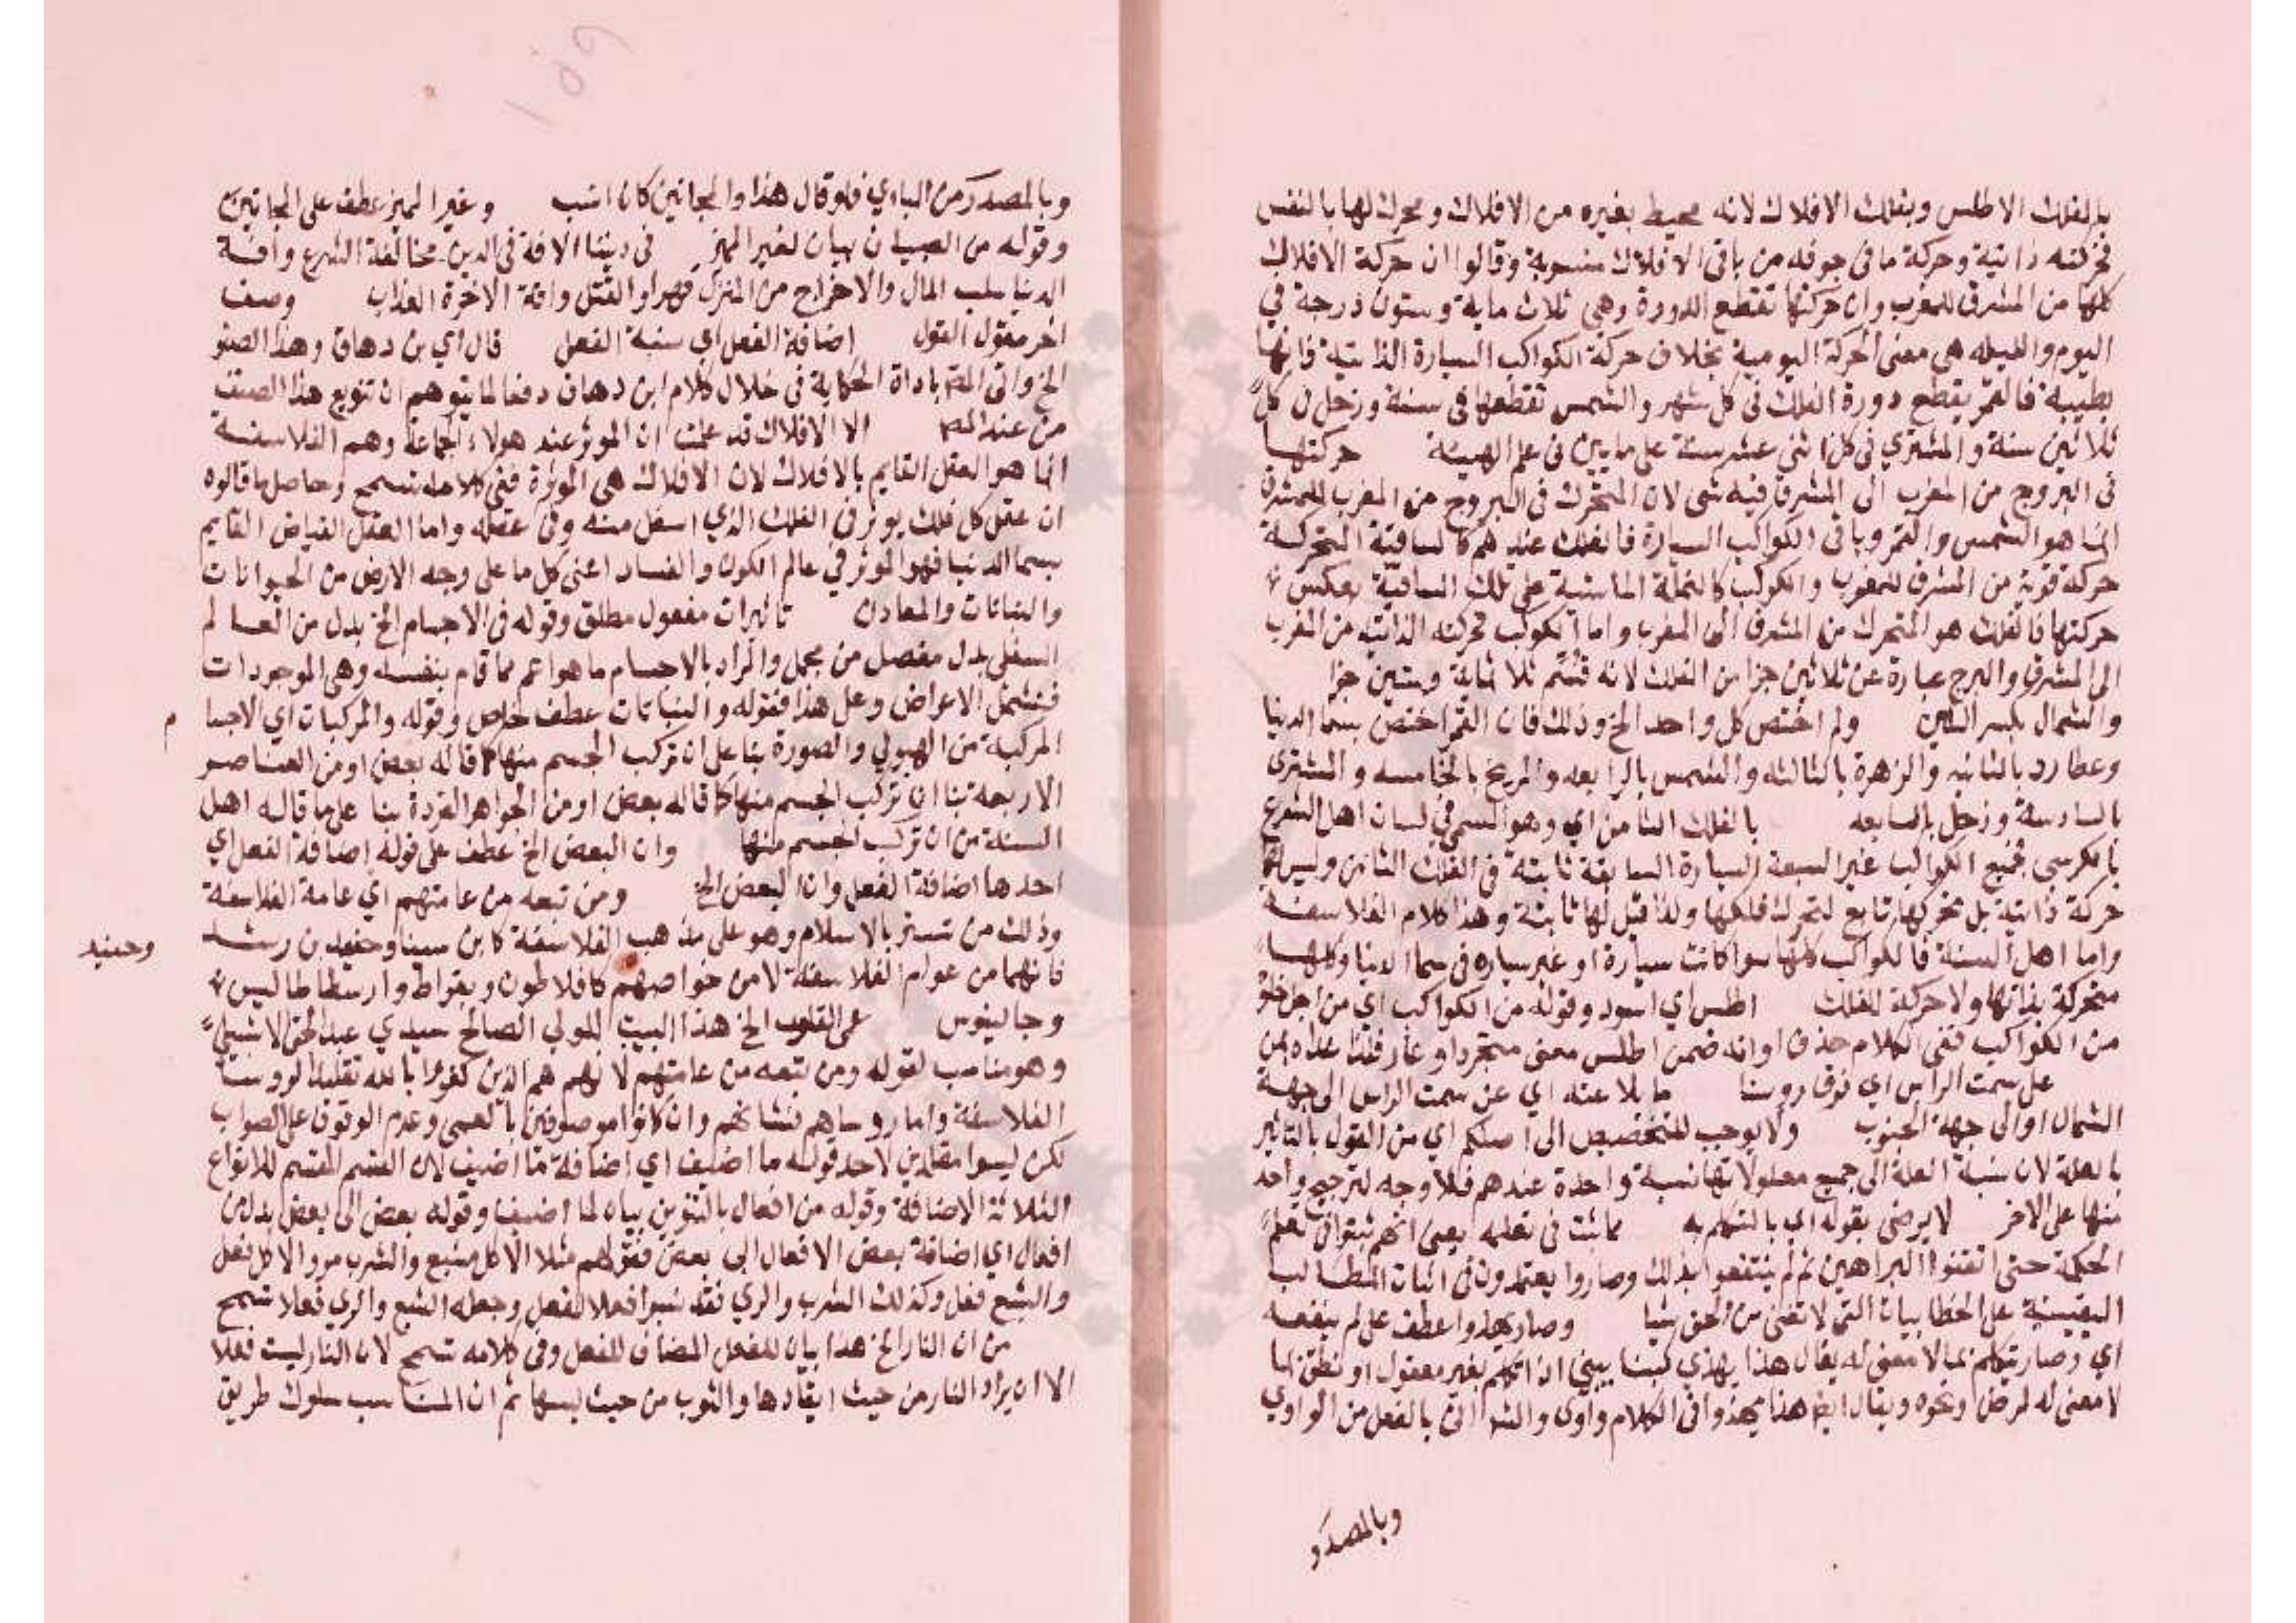 بالفلك الاطلس وبفلك الافلاك لانه محيط بغيره من الافلاك ومحرك لها بالنفس
فحركته ذاتية وحركة ما في جوفه من باقي الافلاك منسوبة وقالوا ان حركة الافلاك
كلها من المشرق للمغرب وان حركتها تقطع الدورة وهي ثلاث ماية وستون درجة في
اليوم والليله هي معنى الحركة اليومية بخلاف حركة الكواكب السيارة الذاتية فانها
بطيئة فالقمر يقطع دورة الفلك في كل شهر والشمس تقطعها في سنة وزحل في كل
ثلاثين سنة والمشتري في كل اثني عشر سنة على ما يبين في علم الهيئة حركتها
في البروج من المغرب الى المشرق فيه شى لان المتحرك في البروج من المغرب للمشرق
انما هو الشمس والقمر وباقي الكواكب السيارة فالفلك عندهم كالساقية المتحركة
حركة قوية من المشرق للمغرب والكواكب كالنملة الماشية على تلك الساقية بعكس
حركتها فالفلك هو المتحرك من المشرق الى المغرب واما الكوكب فحركته الذاتية من المغرب
الى المشرق والبرج عبارة عن ثلاثين جزا من الفلك لانه قُسِّم ثلاثماية وستين جزا
والشمال بكسر الشين ولم اختص كل واحد الخ وذلك فان القمر اختص بسما الدنيا
وعطارد بالثانيه والزهرة بالثالثه والشمس بالرابعه والمريخ بالخامسه والمشترى
بالسادسة وزحل بالسابعه بالفلك الثامن اي وهو المسمى في لسان اهل الشرع
بالكرسى فجميع الكواكب غير السبعة السيارة السابقة ثابتة في الفلك الثامن وليس لها
حركة ذاتية بل تحركها تابع لتحرك فلكها ولذا قيل لها ثابتة وهذا كلام الفلاسفة
واما اهل السنة فالكواكب كلها سوا كانت سيارة او غير سياره في سما الدنيا وكلها
متحركة بذاتها ولا حركة للفلك اطلس اي اسود وقوله من الكواكب اي من اجل خلو
من الكواكب ففي الكلام حذف او انه ضمن اطلس معنى متجرد او عار فلذا عداه بمن
على سمت الراس اي فوق روسنا مايلا عنه اي عن سمت الراس الى جهة
الشمال او الى جهة الجنوب ولا يوجب للتخصيص الى اصلكم اي من القول بالتاثير
بالعلة لان نسبة العلة الى جميع معلولاتها نسبة واحدة عندهم فلا وجه لترجيح واحد
منها على الاخر لا يرضى بقوله اي بالتكلم به في تعلمه يعني انهم تعلم
الحكمة حتى اتقنوا البراهين ثم لم ينتفعوا بذلك وصاروا يعتمدون في اثبات المطالب
اليقينية على الخطابيات التي لا تغني من الحق شيا وصار يهذوا عطف على لم ينفعه
اي وصار يتكلم بما لا معنى له يقال هذا يهذي كبنا يبني اذا تكلم بغير معقول او نطق بما
لا معنى له لمرض ونحوه ويقال ايضا هذا يهذوا في الكلام واوى والتى بالفعل من الواوي
وبالمصدر
وبالمصدر من الياوي فلو قال هذا والمجانين كان انسب وغير المميز عطف على المجانين
وقوله من الصبيان بيان لغير المميز في ديننا الافة في الدين مخالفة الشرع وافة
الدنيا سلب المال والاخراج من المنزل قهرا والقتل وافة الاخرة العذاب وصنف
اخر مقول القول اضافة الفعل اي نسبة الفعل قال اي بن دهاق وهذا الصنف
الخ واتى المص باداة الحكاية في خلال كلام ابن دهاق دفعا لما يتوهم ان تنويع هذا الصنف
من عند المص الا الافلاك قد علمت ان الموثر عند هولاء الجماعة وهم الفلاسفة
انما هو العقل القايم بالافلاك لان الافلاك هي الموثرة ففي كلامه تسمح وحاصل ما قالوه
ان عقل كل فلك يوثر في الفلك الذي اسفل منه وفي عقله واما العقل الفياض القايم
بسما الدنيا فهو الموثر في عالم الكون والفساد اعني كل ما على وجه الارض من الحيوانات
والنباتات والمعادن تاثيرات مفعول مطلق وقوله في الاجسام الخ بدل من العالم
السفلى بدل مفصل من مجمل والمراد بالاجسام ما هو اعم مما قام بنفسه وهي الموجودات
فتشمل الاعراض وعلى هذا فقوله والنباتات عطف خاص وقوله والمركبات اي الاجسا
م
المركبة من الهيولي والصورة بنا على ان تركب الجسم منها كما قاله بعض او من العناصر
الاربعة بنا ان تركب الجسم منها كما قاله بعض او من الجواهر الفردة بنا على ما قاله اهل
السنة من ان تركب الجسم منها وان البعض الخ عطف على قوله اضافة الفعل اي
احدها اضافة الفعل وان البعض الخ ومن تبعه من عامتهم اي عامة الفلاسفة
وذلك من تستر بالاسلام وهو على مذهب الفلاسفة كابن سينا وحفيد بن رشد
وحفيد
فانهما من عوام الفلاسفة لا من خواصهم كافلاطون وبقراط وارسطاطاليس
وجالينوس عمى القلوب الخ هذا البيت للولي الصالح سيدي عبد الحق الاشبيلي
وهو مناسب لقوله ومن تبعه من عامتهم لانهم هم الذين كفروا بالله تقليدا لروسا
الفلاسفة واما روساهم فشانهم وان كانوا موصوفين بالعمى وعدم الوقوف على الصواب
لكن ليسوا مقلدين لاحد قوله ما اضيف اي اضافة ما اضيف لان القسم المقسم للانواع
الثلاثة الاضافة وقوله من افعال بالتنوين بيان لما اضيف وقوله بعض الى بعض بدل من
افعال اي اضافة بعض الافعال الى بعض فقولهم مثلا الاكل مشبع والشرب مرو الاكل فعل
والشبع فعل وكذلك الشرب والري فقد نسبوا فعلا لفعل وجعله الشبع والري فعلا تسمح
من ان النار الخ هذا بيان للفعل المضاف للفعل وفي كلامه تسمح لان النار ليست فعلا
الا ان يراد النار من حيث ايقادها والثوب من حيث لبسها ثم ان المناسب سلوك طريق